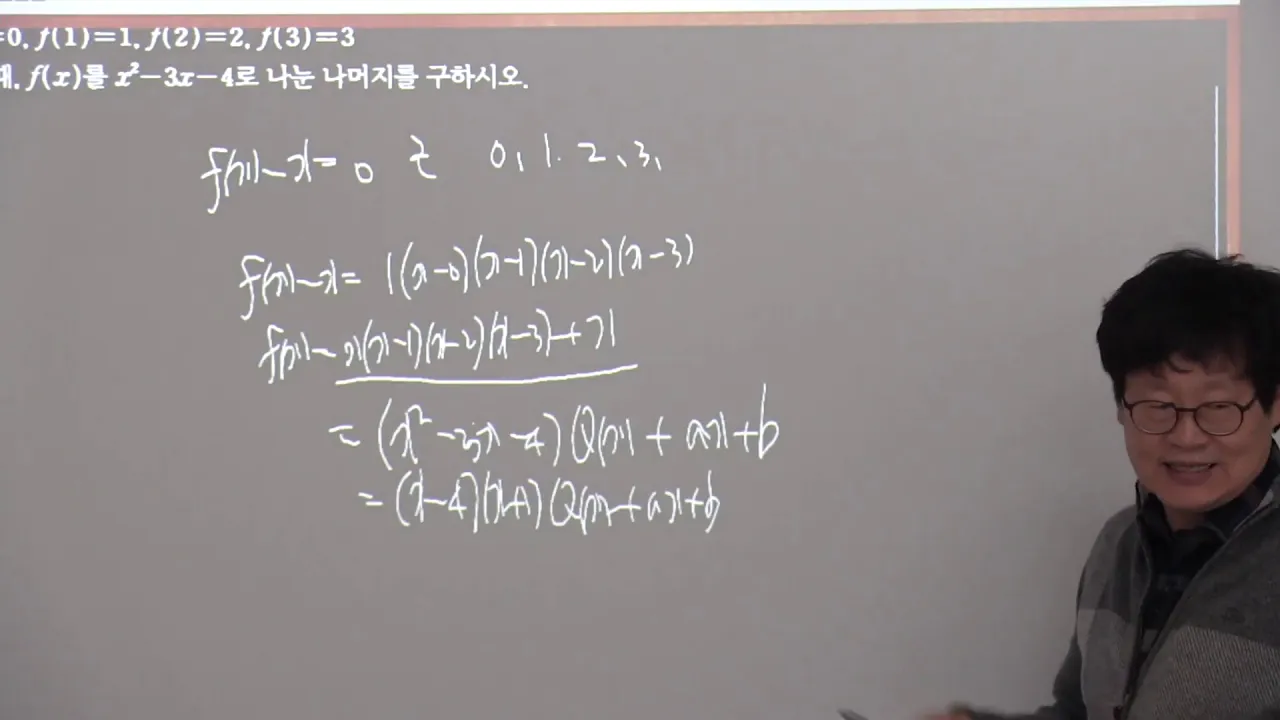 =0, f(1)=1, f(2)=2, f(3)=3
때, f(x)를 x²-3x-4로 나눈 나머지를 구하시오.
f(x)-x=0 근 0, 1, 2, 3,
f(x)-x= 1(x-0)(x-1)(x-2)(x-3)
f(x)= x(x-1)(x-2)(x-3)+x
=(x²-3x-4)Q(x)+ax+b
=(x-4)(x+1)Q(x)+ax+b